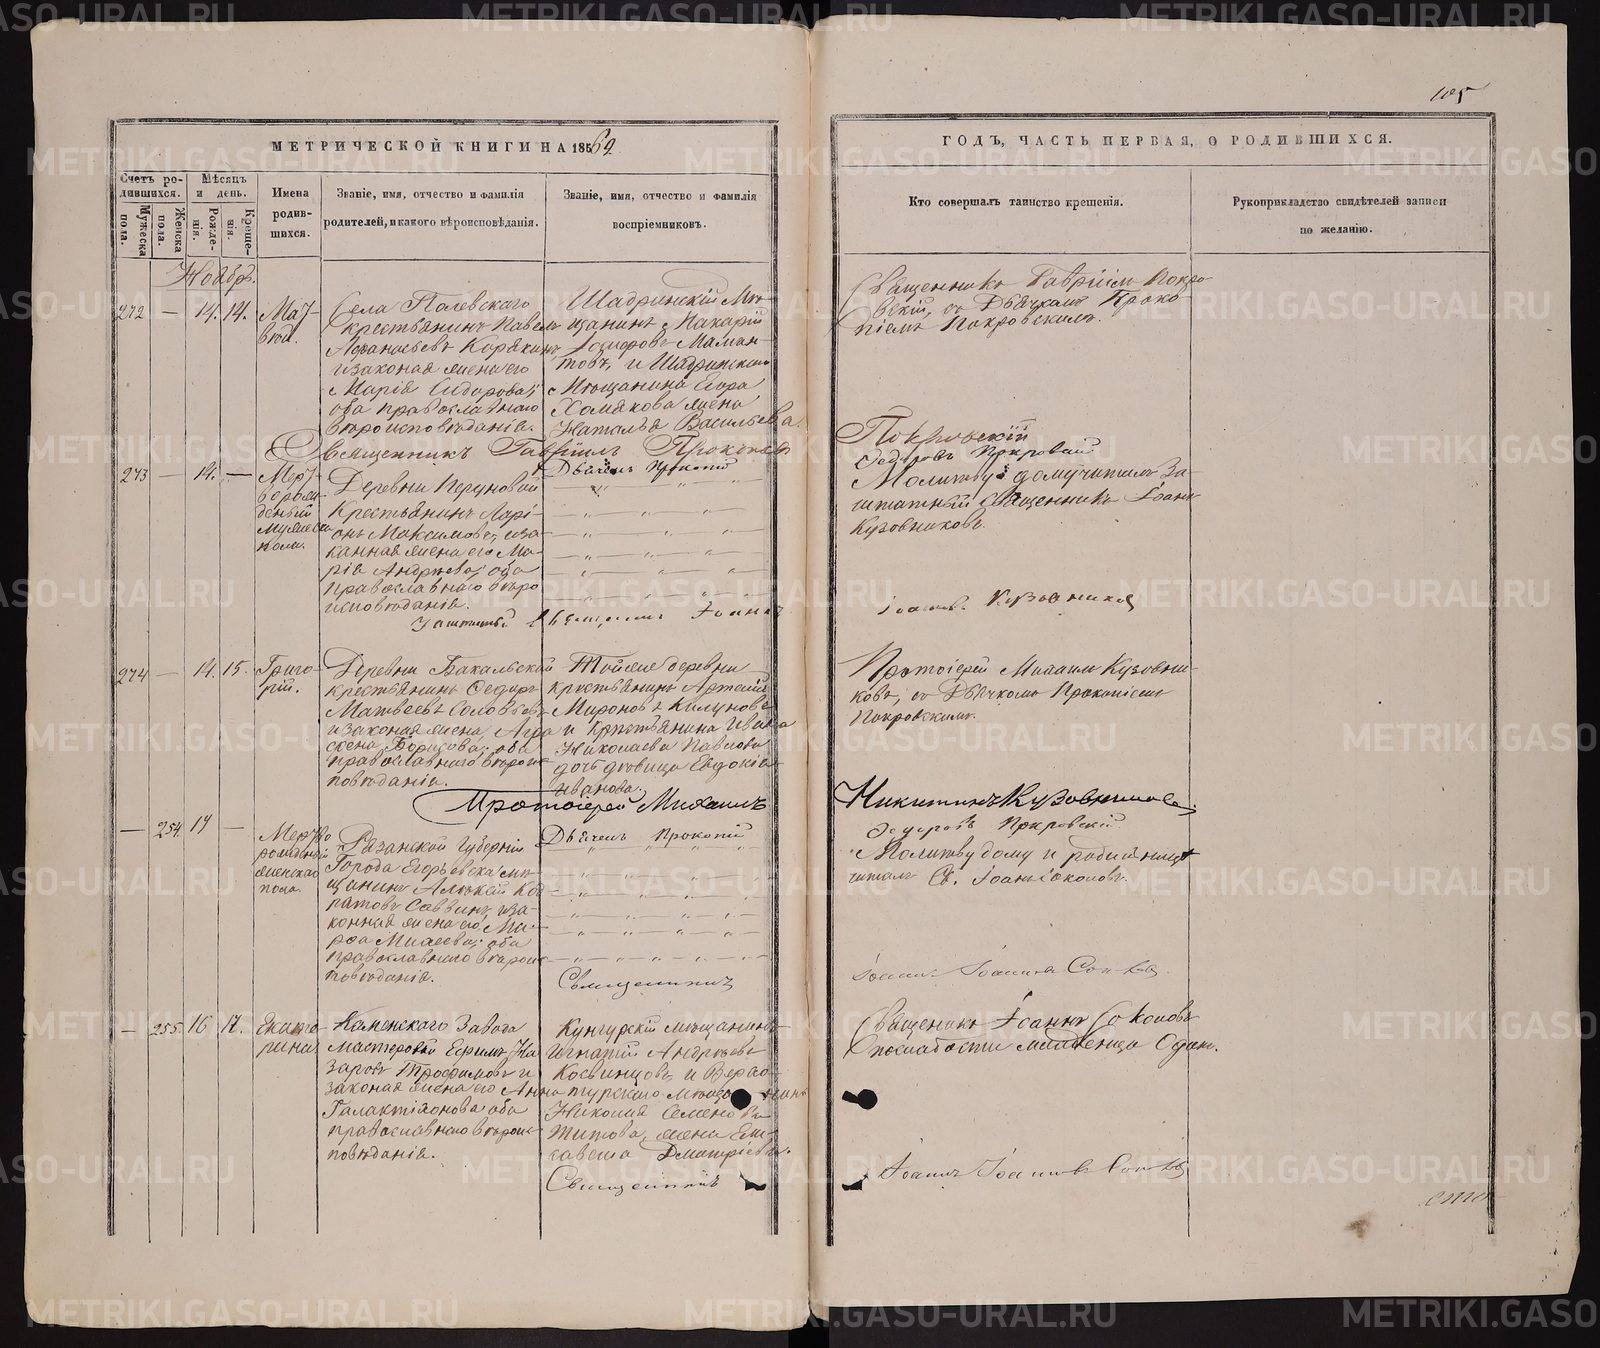 105
МЕТРИЧЕСКОЙ КНИГИ НА 1869
ГОДЪ, ЧАСТЬ ПЕРВАЯ, О РОДИВШИХСЯ.
Счетъ ро-
дившихся.
Мужеска
пола.
Женска
пола.
Мѣсяцъ
и день.
Рожде-
нія.
Креще-
нія.
Имена
родив-
шихся.
Званіе, имя, отчество и фамилія
родителей, и какого вѣроисповѣданія.
Званіе, имя, отчество и фамилія
воспріемниковъ.
Кто совершалъ таинство крещенія.
Рукоприкладство свидѣтелей записи
по желанію.
Ноябрь.
272 — 14. 14.
Мат-
вѣй.
Села
крестьянинъ Павелъ
Афанасьевъ Корякинъ
и законая жена его
Марія Сидорова;
оба православнаго
вѣроисповѣданія.
Шадринскій Мѣ-
щанинъ Макарій
Іосифовъ Маман-
товъ, и Шадринскаго
Мѣщанина Егора
Хомякова жена
Наталья Васильева.
Священникъ Гавріилъ Покро-
вскій, съ Дьячкомъ Проко-
піемъ Покровскимъ.
Священникъ Гавріилъ
Покровскій
Дьячекъ Прокопій
Федоровъ Покровскій
273 — 14. —
Мер-
ворож-
денный
мужеска
пола.
Деревни
Крестьянинъ Ларі-
онъ Максимовъ, и за-
канная жена его Ма-
рія Андреева; оба
православнаго вѣро
исповѣданія.
Молитву домучиталъ За-
штатный Священникъ Іоаннъ
Кузовниковъ.
Заштатный Священникъ Іоаннъ
Іоанновъ Кузовниковъ
274 — 14. 15.
Григо-
рій.
Деревни
крестьянинъ Федоръ
Матвеевъ Соловьевъ
и законая жена Агра
фена Борисова; оба
православнаго вѣроис-
повѣданія.
Той же деревни
крестьянинъ Артемій
Мироновъ
и Крестьянина Ивана
Николаева Павлова
дочь дѣвица Евдокія
Иванова.
Протоіерей Михаилъ Кузовни-
ковъ, съ Дьячкомъ Прокопіемъ
Покровскимъ.
Протоіерей Михаилъ
Никитинъ Кузовниковъ.
Дьячекъ Прокопій
Федоровъ Покровскій
— 254. 14 —
Мертво
рожденный
женскаго
пола.
Рязанской Губерніи
Города Егорьевска мѣ-
щанинъ Алексѣй
Саввинъ, и за-
конная жена его Ма-
рфа Михеева; оба
православнаго вѣроис-
повѣданія.
Молитву дому и родильницѣ
читалъ Св. Іоаннъ Соколовъ.
Священникъ
Іоаннъ Іоанновъ Соколовъ
— 255. 16 17.
Екате
рина
Каменскаго Завода
мастеровой Ефимъ На
заровъ Трофимовъ и
законая жена его Анна
Галактіонова оба
православнаго вѣроис-
повѣданія.
Кунгурскій мѣщанинъ
Игнатій Андреевъ
Косвинцовъ и Верхо-
турскаго мѣщанина
Николая Семенова
Титова, жена Ели-
савета Дмитріева.
Священникъ Іоаннъ Соколовъ
послабости младенца Одинъ.
Священникъ
Іоаннъ Іоанновъ Соколовъ
METRIKI.GASO-URAL.RU